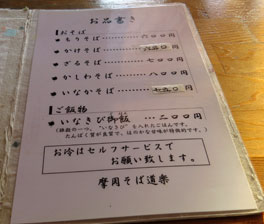 お品書き
【おそば】
・もりそば・・・・六〇〇円
・かけそば・・・・六五〇円
・ざるそば・・・・七〇〇円
・かしわそば・・・八〇〇円
・いなかそば・・・七五〇円
【ご飯物】
・いなきび御飯・・・二〇〇円
お冷はセルフサービスで
お願い致します。
摩周そば道楽